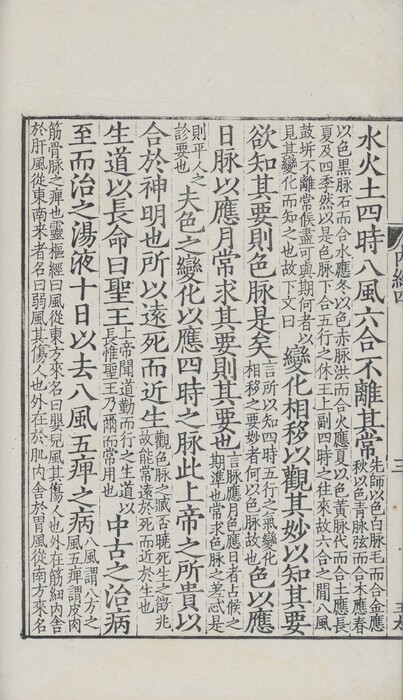 内經四
三
水火土四時八風六合不離其常先師以色白脉毛而合金應
秋以色青脉弦而合木應春
以色黑脉石而合水應冬以色赤脉洪而合火應夏以色黃脉代而合土應長
夏及四季然以是色脉下合五行之休王上副四時之往來故六合之間八風
鼓坼不離常候盡可與期何者以
見其變化而知之也故下文曰
變化相移以觀其妙以知其要
欲知其要則色脉是矣言所以知四時五行之氣變化
相移之要妙者何以色脉故也
色以應
日脉以應月常求其要則其要也言脉應月色應日者占候之
期準也常求色脉之差忒是
則平人之
診要也
夫色之變化以應四時之脉此上帝之所貴以
合於神明也所以遠死而近生觀色脉之臧否曉死生之徵兆
故能常遠於死而近於生也
生道以長命曰聖王上帝聞道勤而行之生道以
長惟聖王乃爾而常用也
中古之治病
至而治之湯液十日以去八風五痺之病八風謂八方之
風五痺謂皮肉
筋骨脉之痺也靈樞經曰風從東方來名曰嬰兒風其傷人也外在筋紐内舍
於肝風從東南來者名曰弱風其傷人也外在於肌内舍於胃風從南方來名